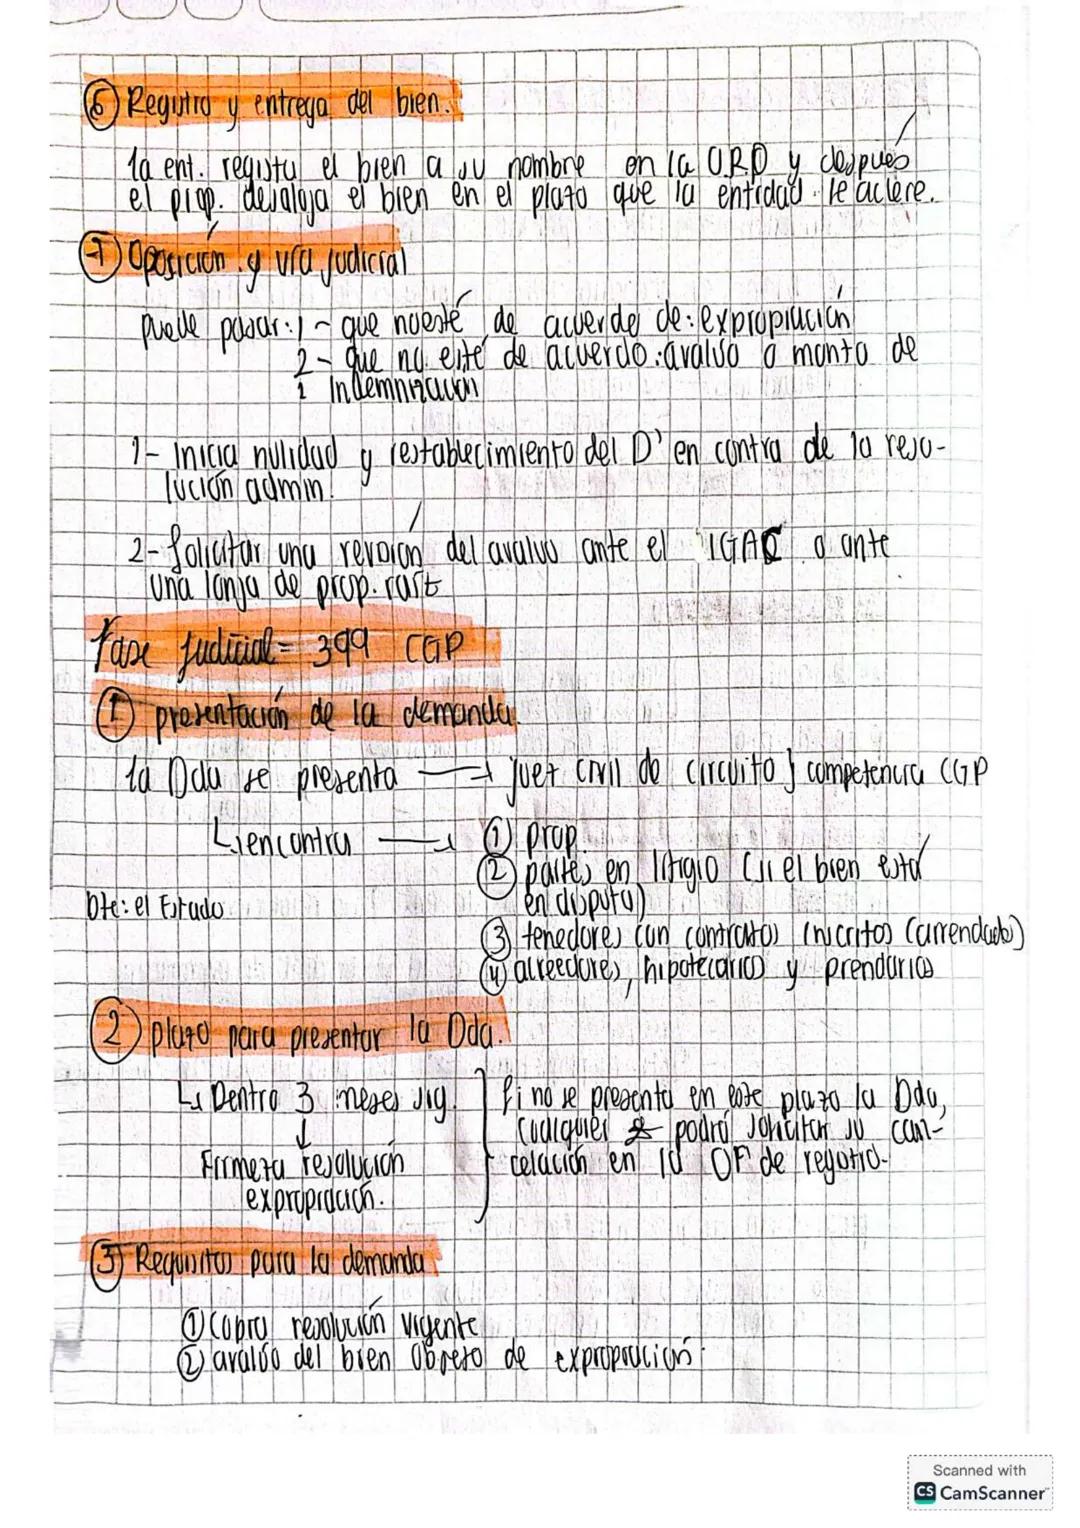 ⑥ Registro y entrega del bien.
la ent. registra el bien a su nombre en la ORP y después
el prop. desaloja el bien en el plazo que la entidad le
⑦ Oposición y vía judicial
puede pasar: 1 - que no esté de acuerdo de: expropiación
2 - que no esté de acuerdo: avalúo o monto de
indemnización
1- Inicia nulidad y restablecimiento del D' en contra de la reso-
lución admin.
2- Solicitar una revisión del avaluo ante el IGAC o ante
una lonja de prop. raíz
Fase judicial = 399 CGP
① presentación de la demanda.
la Dda se presenta → juez civil de circuito } competencia CGP
↳ en contra → ① prop.
② partes en litigio (si el bien está
en disputa)
Dte: el Estado
③ tenedores con contratos inscritos (arrendados)
④ acreedores, hipotecarios y prendarios
② plazo para presentar la Dda.
↳ Dentro 3 meses sig.
↓
Firmeza resolución
expropiación.
Si no se presenta en este plazo la Dda,
cualquier podrá solicitar su can-
celación en la OF de registro.
③ Requisitos para la demanda
① Copia resolución vigente
② avalúo del bien objeto de expropiación.
Scanned with
CS CamScanner